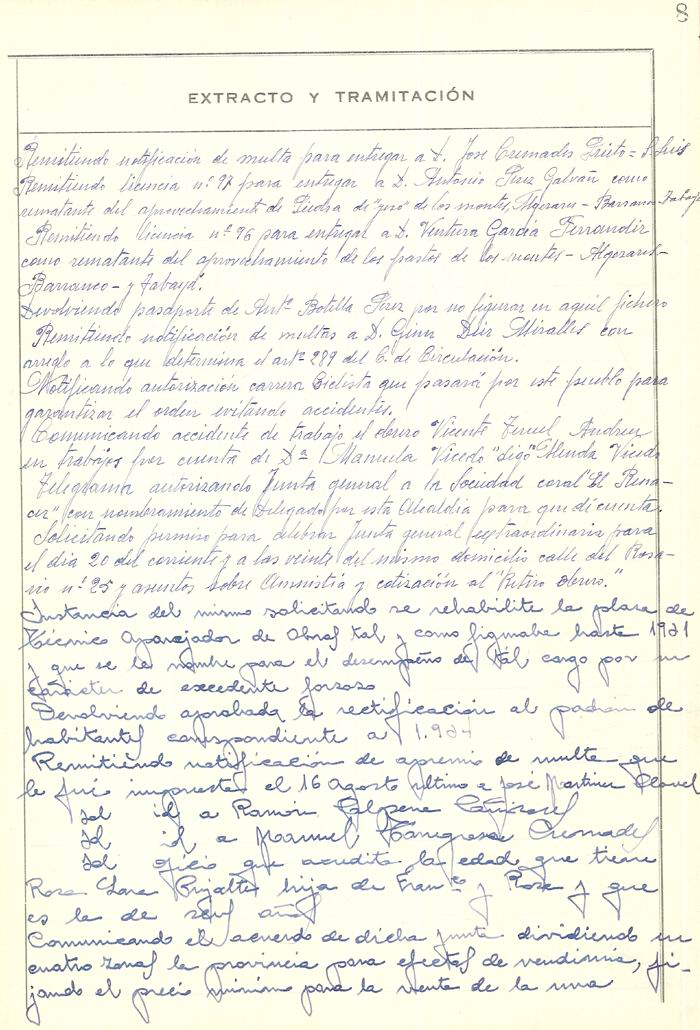 8
EXTRACTO Y TRAMITACIÓN
Remitiendo notificación de multa para entregar a D. Jose Cremades Prieto = S. Luis
Remitiendo licencia nº 97 para entregar a D. Antonio Perez Galvañ como
rematante del aprovechamiento de Piedra de "yeso" de los montes, Algezares - Barranco - Tabayá
Remitiendo licencia nº 96 para entregar a D. Ventura García Ferrandiz
como rematante del aprovechamiento de los pastos de los montes - Algezares -
Barranco - y Tabayá.
Devolviendo pasaporte de Antº Botella Perez por no figurar en aquel fichero
Remitiendo notificación de multas a D. Gines Miralles con
arreglo a lo que determina el artº 289 del C. de Circulación.
Notificando autorización carrera Ciclista que pasará por este pueblo para
garantizar el orden evitando accidentes.
Comunicando accidente de trabajo el obrero Vicente Teruel Andreu
en trabajos por cuenta de Dª Manuela Vicedo "digo" Vicedo
Telegrama autorizando Junta general a la Sociedad coral "El Rena-
cer" con nombramiento de Delegado por esta Alcaldía para que dé cuenta.
Solicitando permiso para celebrar Junta general extraordinaria para
el dia 20 del corriente y a las veinte del mismo domicilio calle del Rosa-
rio nº 25 y asuntos sobre Amnistía y cotización al "Retiro Obrero."
Instancia del mismo solicitando se rehabilite la plaza de
Técnico Aparejador de Obras tal y como figuraba hasta 1931
y que se le nombre para el desempeño de tal cargo por su
carácter de excedente forzoso
Devolviendo aprobada la rectificación al padrón de
habitantes correspondiente a 1.934
Remitiendo notificación de apremio de multa que
le fué impuesta el 16 Agosto ultimo a José Martinez Clavel
Id id a Ramón Galpena Cañizares
Id id a Manuel Cremades
Id oficio que acredita la edad que tiene
Rosa Lara hija de Franco y Rosa y que
es la de seis años
Comunicando el acuerdo de dicha junta dividiendo en
cuatro zonas la provincia para efectos de vendimia, fi-
jando el precio minimo para la venta de la uva